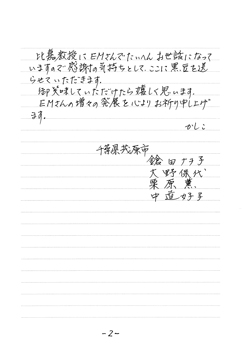 比嘉教授にEMさんでたいへんお世話になって
いますので感謝の気持ちとして、ここに黒豆を送
らせていただきます。
御笑味していただけたら嬉しく思います。
EMさんの増々の発展を心よりお祈り申し上げ
ます。
かしこ
千葉県茂原市
鎗田ナヲ子
大野保代
栗原薫
中道好子
-2-